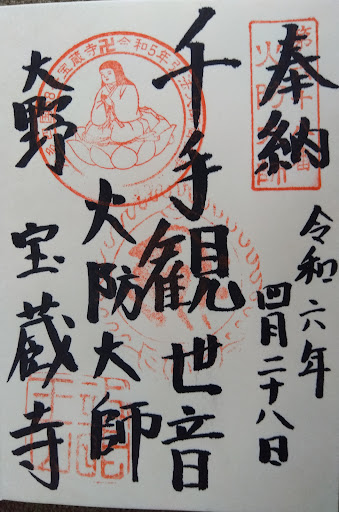 奉納
令和六年
四月二十八日
千手観世音
火防大師
大野
宝蔵寺
宝蔵寺卍令和5年弘